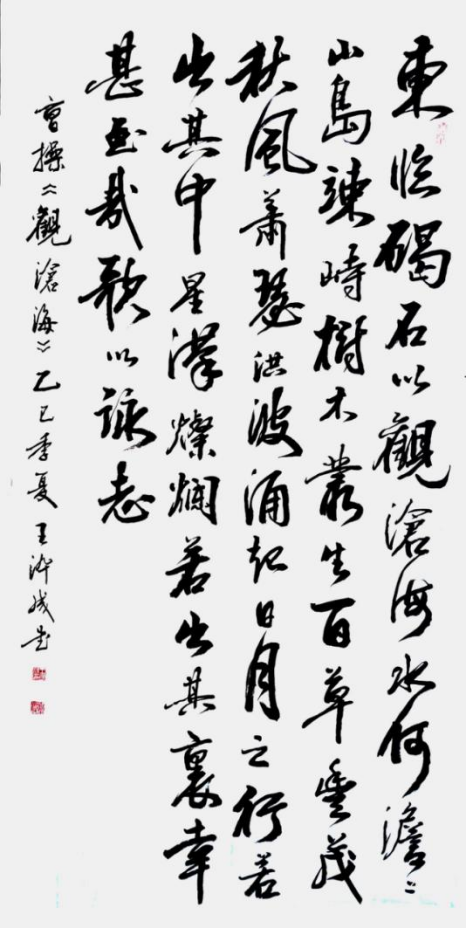 東臨碣石以觀滄海水何澹〻
山島竦峙樹木叢生百草豐茂
秋風蕭瑟洪波涌起日月之行若
出其中星漢燦爛若出其裏幸
甚至哉歌以詠志
曹操《觀滄海》乙巳季夏王